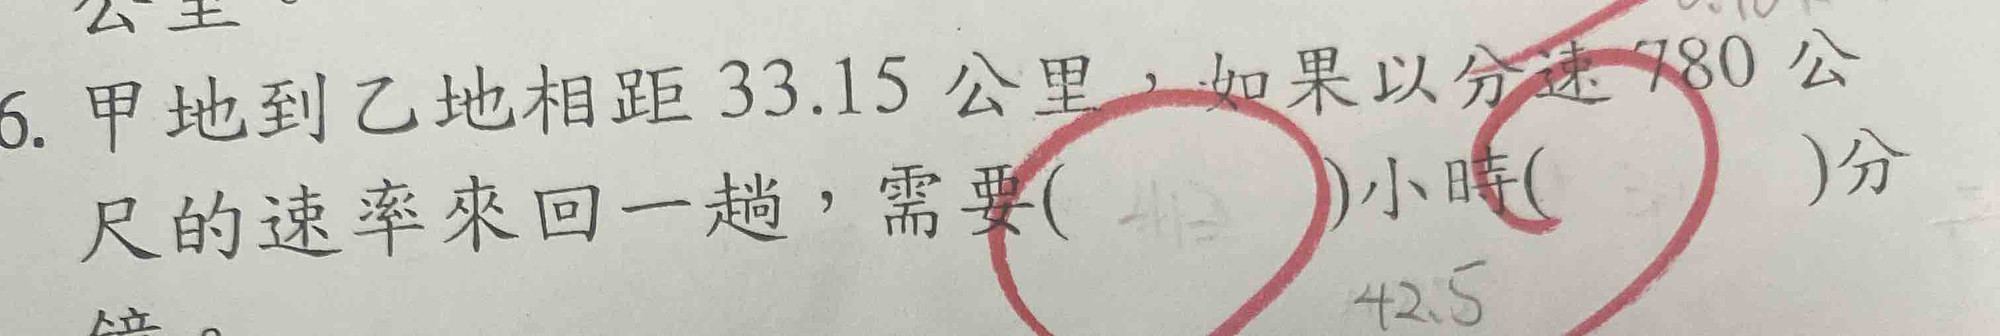 公里。
6. 甲地到乙地相距 33.15 公里，如果以分速 780 公
尺的速率來回一趟，需要( )小時( )分
42.5
鐘。